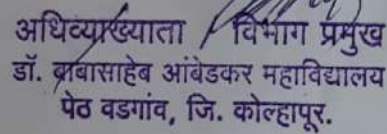 अधिव्याख्याता / विभाग प्रमुख
डॉ. बाबासाहेब आंबेडकर महाविद्यालय
पेठ वडगांव, जि. कोल्हापूर.